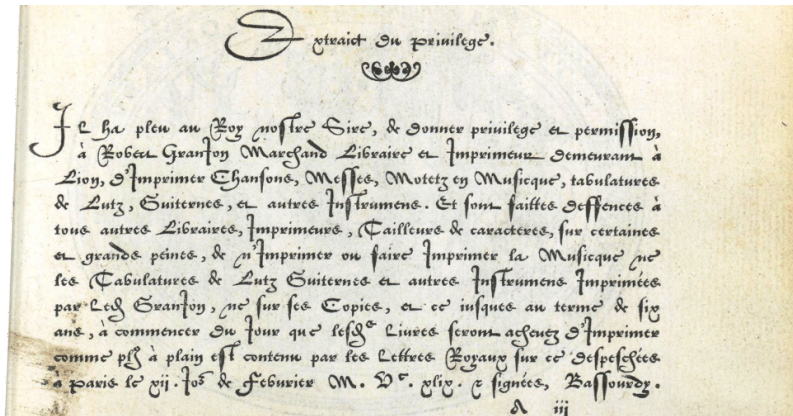 Extraict du privilege.
Il ha pleu au Roy nostre Sire, de donner privilege et permission,
à Robert GranJon Marchand Libraire et Imprimeur demeurant à
Lion, d'Imprimer Chansons, Messes, Motetz en Musicque, tabulatures
de Lutz, Guiternes, et autres Instrumens. Et sont faittes deffences à
tous autres Libraires, Imprimeurs, Tailleurs de caracteres, sur certaines
et grandes peines, de n'Imprimer ou faire Imprimer la Musicque ne
les Tabulatures de Lutz Guiternes et autres Instrumens Imprimées
par Ledh GranJon, ne sur ses Copies, et ce iusques au terme de six
ans, à commencer du Jour que lesdhs Livres seront achevez d'Imprimer
comme pl9 à plain est contenu par les Lettres Royaux sur ce despeschées
à Paris le xii. Jor de Febvrier M. Vc. xlix. & signées, Bassourdy.
A iii